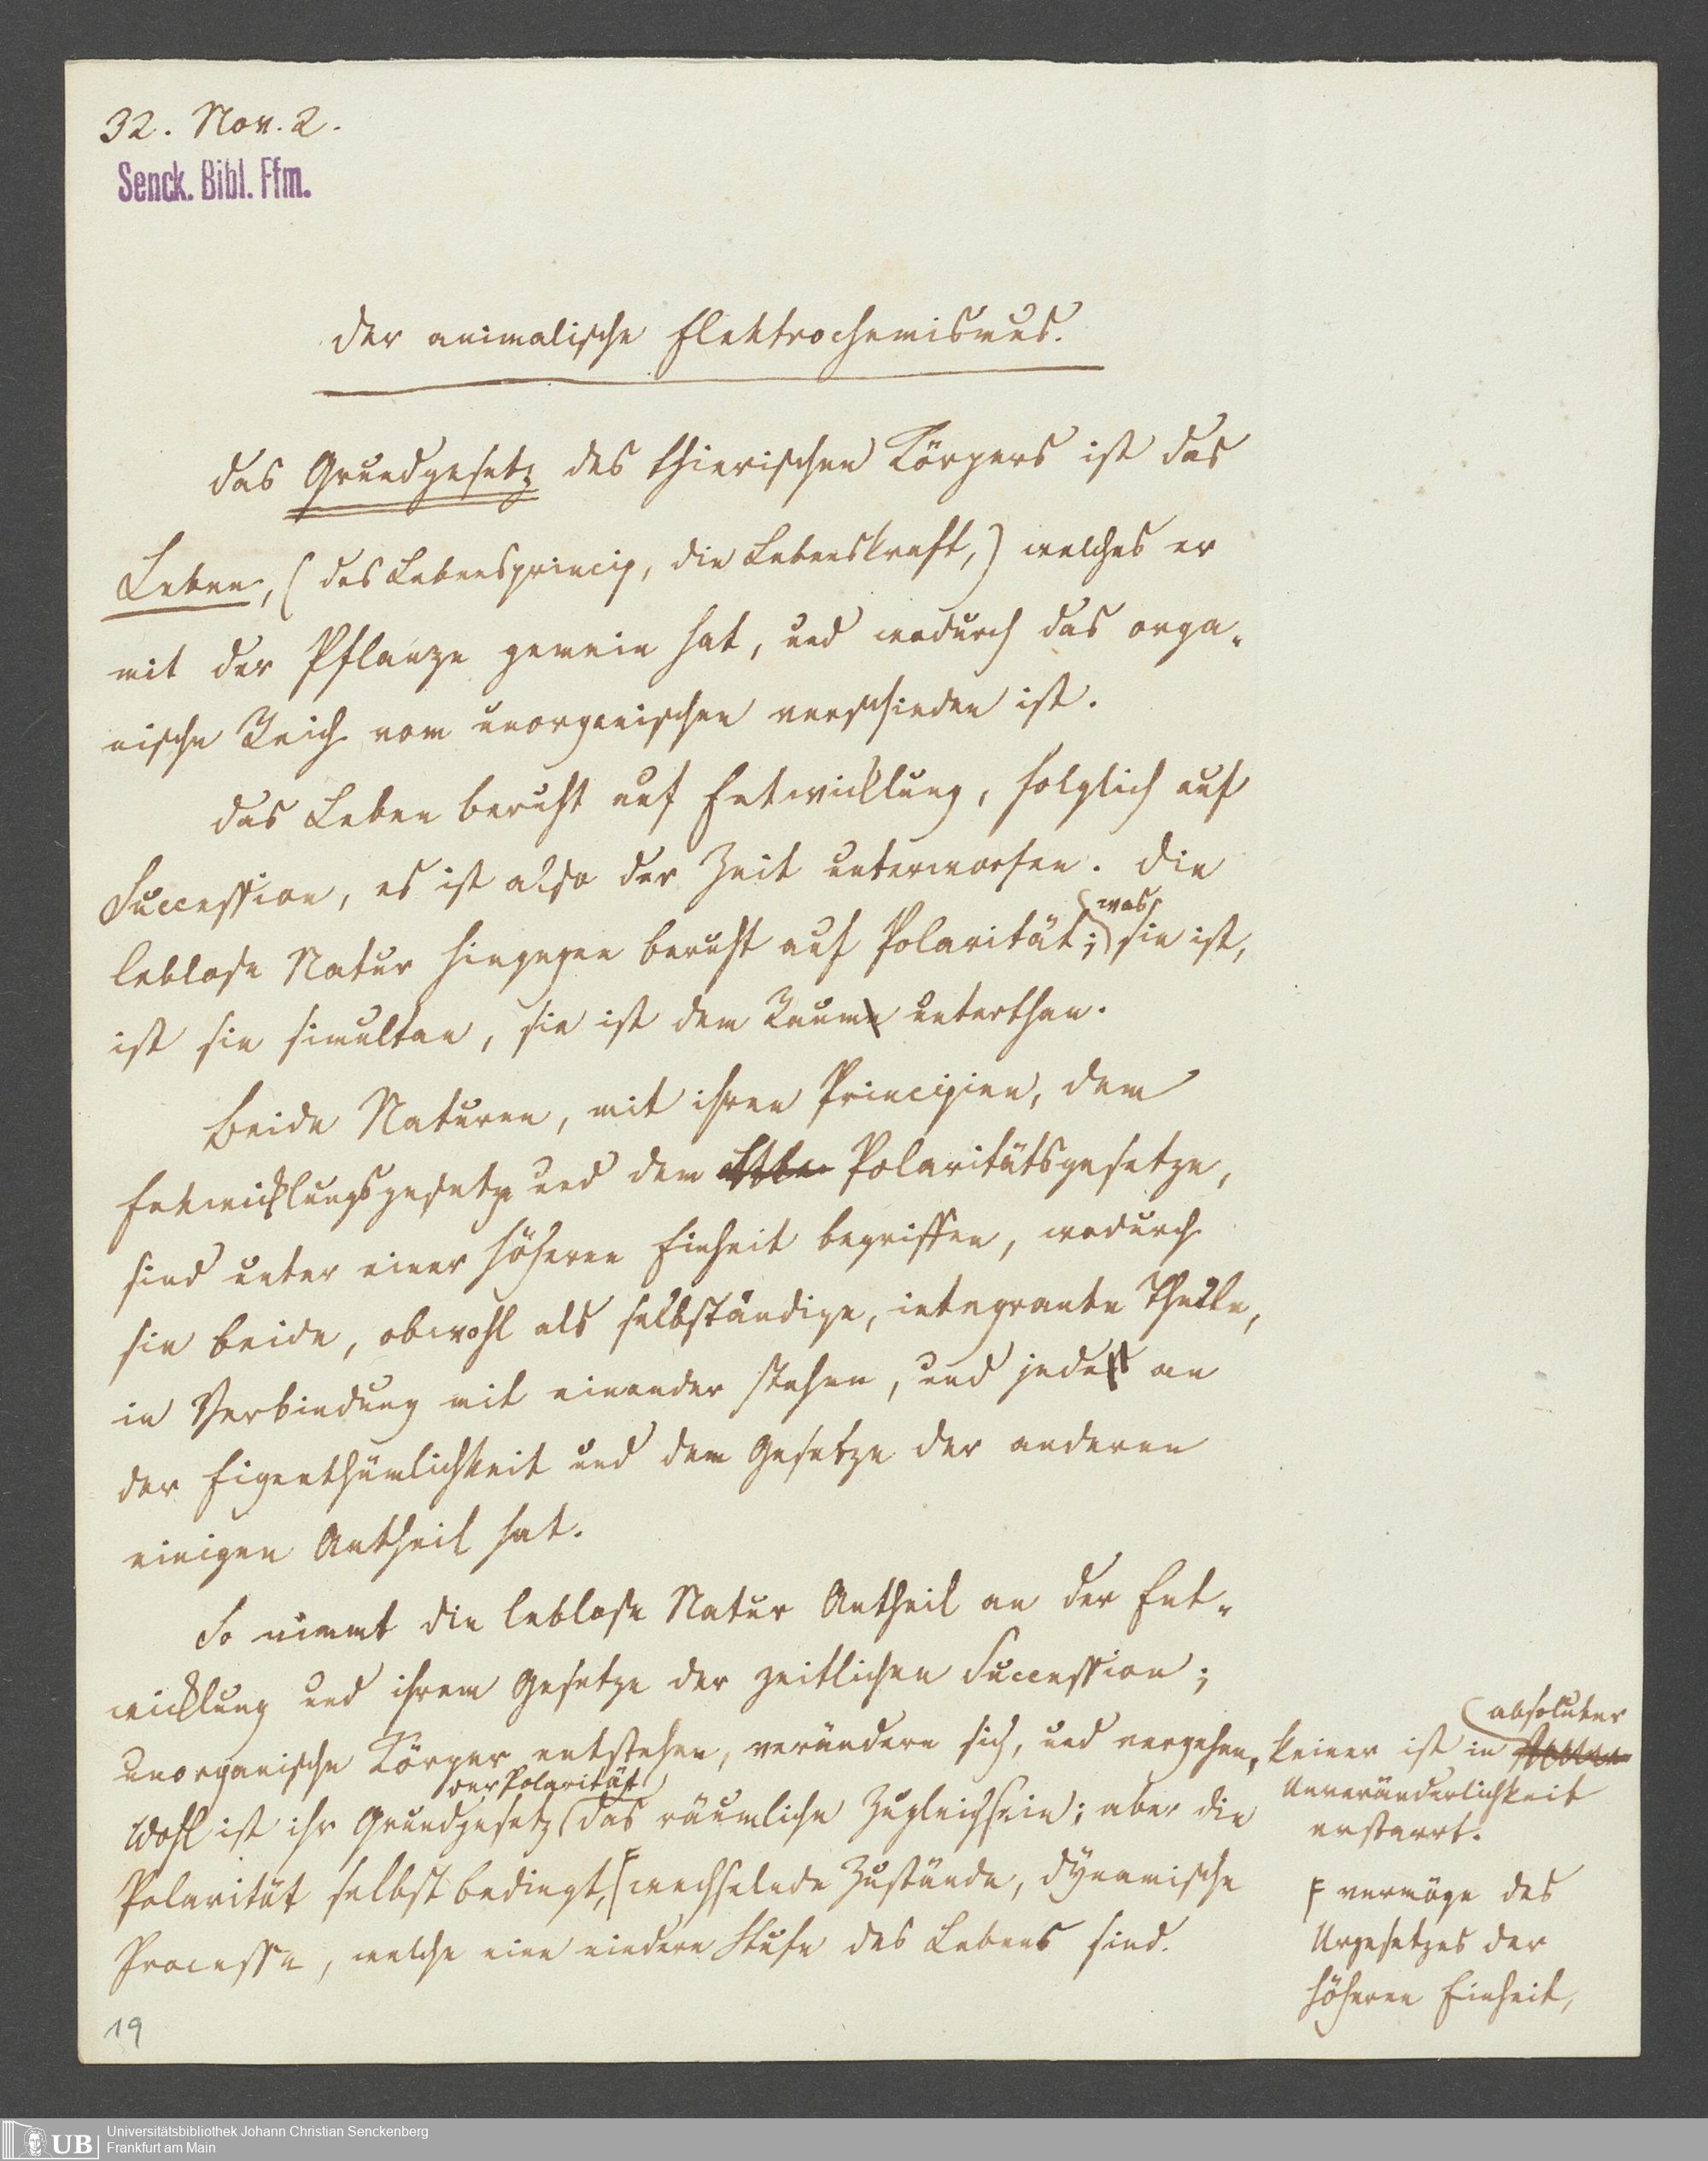 32. Nov. 2.
Senck. Bibl. Ffm.
Der animalische Elektrochemismus.
Das Grundgesetz des thierischen Körpers ist das
Leben, (das Lebensprincip, die Lebenskraft,) welches er
mit der Pflanze gemein hat, und wodurch das orga-
nische Reich vom unorganischen verschieden ist.
Das Leben beruht auf Entwicklung, folglich auf
Succession, es ist also der Zeit unterworfen. Die
leblose Natur hingegen beruht auf Polarität; was sie ist,
ist sie simultan, sie ist dem Raum unterthan.
Beide Naturen, mit ihren Principien, dem
Entwicklungsgesetze und dem Polaritätsgesetze,
sind unter einer höheren Einheit begriffen, wodurch
sie beide, obwohl als selbständige, integrante Theile,
in Verbindung mit einander stehen, und jede an
der Eigenthümlichkeit und dem Gesetze der anderen
einigen Antheil hat.
So nimmt die leblose Natur Antheil an der Ent-
wicklung und ihrem Gesetze der zeitlichen Succession;
unorganische Körper entstehen, verändern sich, und vergehen, keiner ist in absoluter
Unveränderlichkeit
erstarrt.
Wohl ist ihr Grundgesetz der Polarität das räumliche Zugleichsein; aber die
Polarität selbst bedingt, F wechselnde Zustände, dynamische
Processe, welche eine niedere Stufe des Lebens sind.
F vermöge des
Urgesetzes der
höheren Einheit,
19
UB
Universitätsbibliothek Johann Christian Senckenberg
Frankfurt am Main